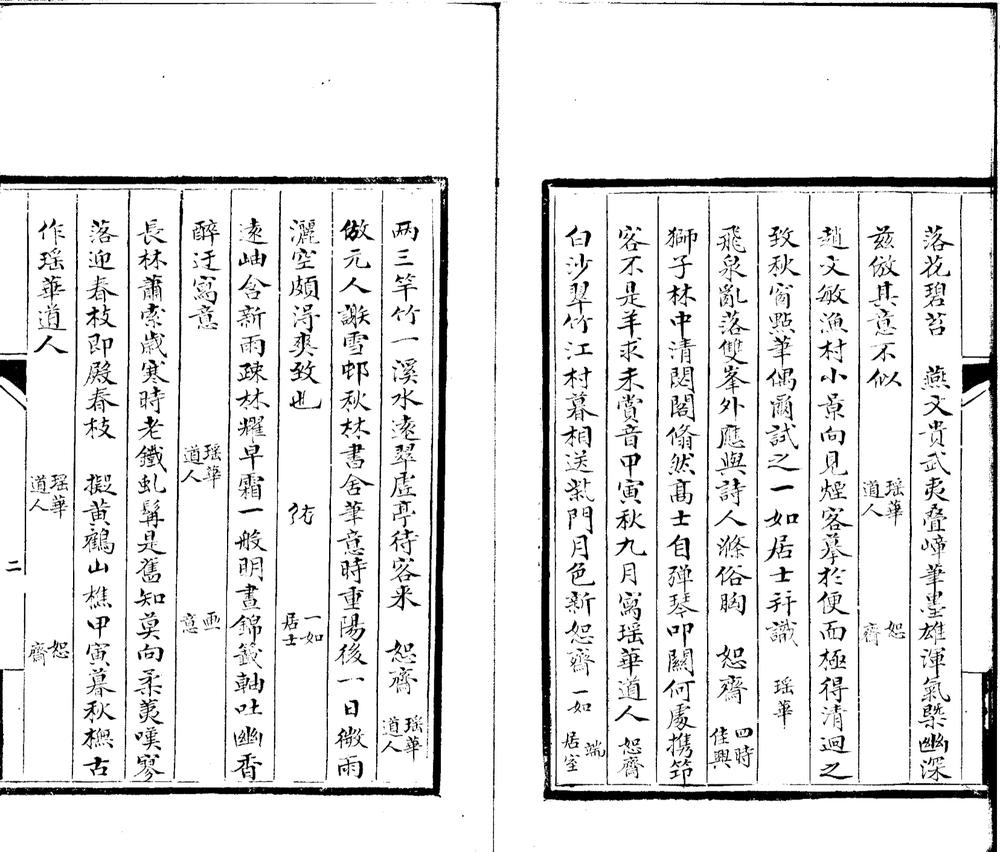 落花碧苔　燕文貴武夷疊嶂筆墨雄渾氣槩幽深
兹倣其意不似　瑶華道人　恕齋
趙文敏漁村小景向見煙客摹於便面極得清迥之
致秋窗㸃筆偶爾試之一如居士并識　瑶華
飛泉亂落雙峯外應與詩人滌俗胸　恕齋　四時佳興
獅子林中清閟閣翛然髙士自弹琴叩關何處携笻
客不是羊求未賞音甲寅秋九月寫瑶華道人　恕齊
白沙翠竹江村暮相送柴門月色新恕齊　一如　端居室
两三竿竹一溪水遠翠虚亭待客来　恕齊　瑶華道人
倣元人謝雪邨秋林書舍筆意時重陽後一日微雨
灑空頗淂爽致也　一如居士
遠岫含新雨疎林耀早霜一般明晝錦籖軸吐幽香
醉迂寫意　瑶華道人　画意
長林蕭索歲寒時老鐵虬髯是舊知莫向柔荑嘆寥
落迎春枝即殿春枝　擬黄鶴山樵甲寅暮秋橅古
作瑶華道人　瑶華道人　恕齊
二